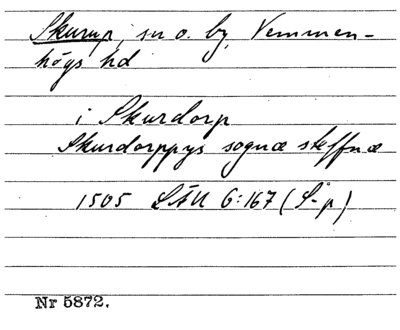 Skurup, sn o. by, Vemmen-
högs hd
i Skurdorp
Skurdorppys sognæ steffnæ
1505 LÄU 6:167 (S-p)
Nr 5872.